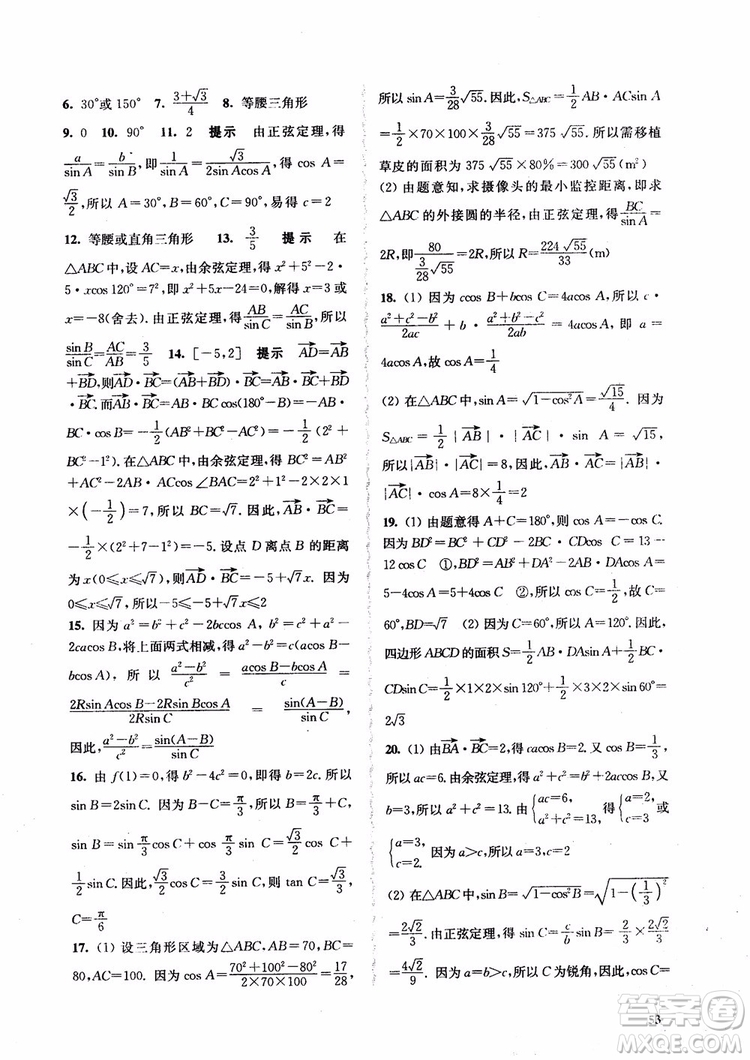 6. 30°或 150°  7. (3+√3)/4  8. 等腰三角形
9. 0  10. 90°  11. 2  提示  由正弦定理,得
a/sin A=b/sin B,即1/sin A=√3/(2sin Acos A),得 cos A=
√3/2,所以 A=30°,B=60°,C=90°,易得 c=2
12. 等腰或直角三角形  13. 3/5  提示  在
△ABC 中,设 AC=x,由余弦定理得 x²+5²-2
·5·xcos 120°=7²,即 x²+5x-24=0,得 x=3或
x=-8(舍去).由正弦定理得 AB/sin C=AC/sin B,所以
sin B/sin C=AC/AB=3/5  14. [-5,2]  提示  AD→=AB→
+BD→,则AD→·BC→=(AB→+BD→)·BC→=AB→·BC→+BD→
·BC→.而AB→·BC→=AB·BC·cos(180°-B)=-AB·
BC·cos B=-1/2(AB²+BC²-AC²)=-1/2(2²+
BC²-1²).在△ABC 中,由余弦定理得 BC²=AB²
+AC²-2AB·ACcos∠BAC=2²+1²-2×2×1
×(-1/2)=7,所以 BC=√7.因此,AB→·BC→=
-1/2×(2²+7-1²)=-5.设点 D 离点 B 的距离
为 x(0≤x≤√7),则AD→·BC→=-5+√7x.因为
0≤x≤√7,所以-5≤-5+√7x≤2
15. 因为 a²=b²+c²-2bccos A, b²=a²+c²-
2cacos B,将上面两式相减,得 a²-b²=c(acos B-
bcos A), 所以 (a²-b²)/c²=(acos B-bcos A)/c=
(2Rsin Acos B-2Rsin Bcos A)/(2Rsin C)=sin(A-B)/sin C.
因此,(a²-b²)/c²=sin(A-B)/sin C
16. 由 f(1)=0,得 b²-4c²=0,即 b=2c.所以
sin B=2sin C.因为 B-C=π/3,所以 sin(C+π/3)
=2sin C,即 sin C·cos π/3+cos C·sin π/3=2sin C,
1/2sin C.因此,√3/2cos C=3/2sin C,则 tan C=√3/3,
C=π/6
17. (1) 设三角形区域为△ABC,AB=70,BC=
80,AC=100.因为 cos A=(70²+100²-80²)/(2×70×100)=17/28,
所以 sin A=3/28√55.因此,S△ABC=1/2AB·ACsin A
=1/2×70×100×3/28√55=375√55.所以需移植
草皮的面积为 375√55×80%=300√55(m²)
(2) 由题意知,求摄像头的最小监控距离,即求
△ABC 的外接圆的半径,由正弦定理得 BC/sin A=
2R,即 80/(3/28√55)=2R,所以 R=224√55/33(m)
18. (1) 因为 ccos B+bcos C=4acos A,所以 c·
(a²+c²-b²)/2ac+b·(a²+b²-c²)/2ab=4acos A,即 a=
4acos A,故 cos A=1/4
(2) 在△ABC 中,sin A=√(1-cos²A)=√15/4.因为
S△ABC=1/2|AB→|·|AC→|·sin A=√15,
所以|AB→|·|AC→|=8.因此,AB→·AC→=|AB→|·
|AC→|·cos A=8×1/4=2
19. (1) 由题意得 A+C=180°,则 cos A=-cos C.
因为 BD²=BC²+CD²-2BC·CDcos C=13-
12cos C  ①,BD²=AB²+DA²-2AB·DAcos A=
5-4cos A=5+4cos C  ②,所以 cos C=1/2,故 C=
60°,BD=√7  (2) 因为 C=60°,所以 A=120°.因此,
四边形 ABCD 的面积 S=1/2AB·DAsin A+1/2BC·
CDsin C=1/2×1×2×sin 120°+1/2×3×2×sin 60°=
2√3
20. (1) 由BA→·BC→=2,得 cacos B=2.又 cos B=1/3,所以
ac=6.由余弦定理得 a²+c²=b²+2accos B.又
b=3,所以 a²+c²=13.由{ac=6, a²+c²=13,得{a=2, c=3或
{a=3, c=2. 因为 a>c,所以 a=3,c=2
(2) 在△ABC 中,sin B=√(1-cos²B)=√(1-(1/3)²)
=2√2/3.由正弦定理,得 sin C=c/b sin B=2/3×2√2/3
=4√2/9.因为 a=b>c,所以 C 为锐角,cos C=
53
答案圈
MXQE.COM